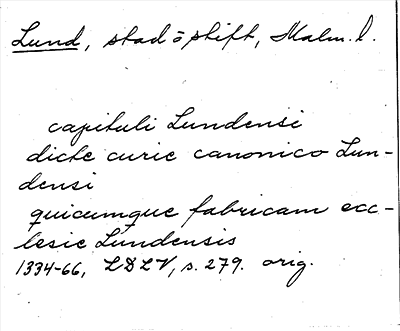 Lund, stad o stift, Malm. l.
capituli Lundensi
dicte curie canonico Lun-
densi
quicumque fabricam ecc-
lesie Lundensis
1334-66, LDLV, s. 279. orig.